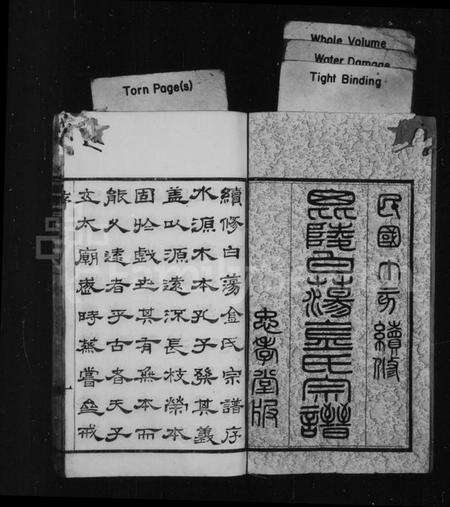 Whole Volume
Water Damage
Tight Binding
Torn Page(s)
民國續修
毘陵白蕩金氏宗譜
忠孝堂版
續修白蕩金氏宗譜序
水源木本孔子發其義
蓋以源遠流長枝榮本
固於戲世其有無本而
能久遠者乎古者天子
立太廟歲時蒸嘗戒
序
一